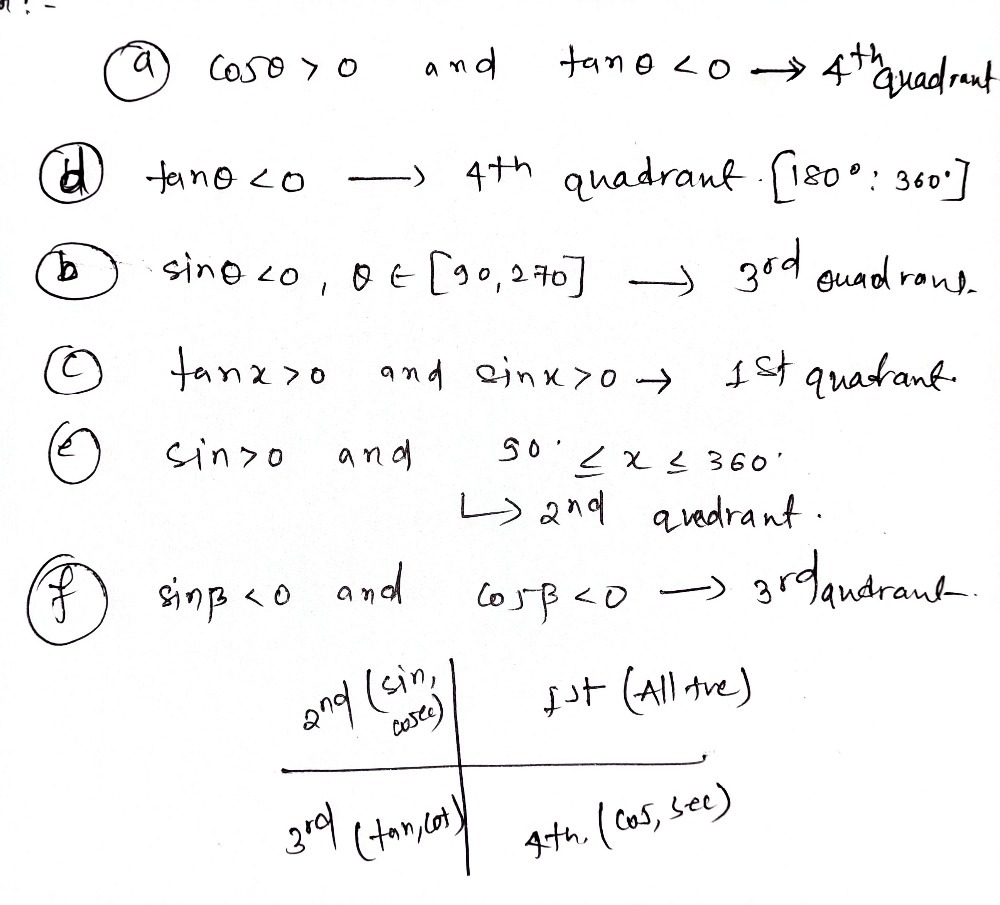 a cosθ > 0 and tanθ < 0 → 4th quadrant
d tanθ < 0 → 4th quadrant. [180° : 360°]
b sinθ < 0, θ ∈ [90, 270] → 3rd quadrant.
c tanx > 0 and sinx > 0 → 1st quatrant.
e sin > 0 and 90° ≤ x ≤ 360°
↳ 2nd quadrant.
f sinβ < 0 and cosβ < 0 → 3rd quadrant.
2nd (sin, cosec) 1st (All +ve)
3rd (tan, cot) 4th. (cos, sec)